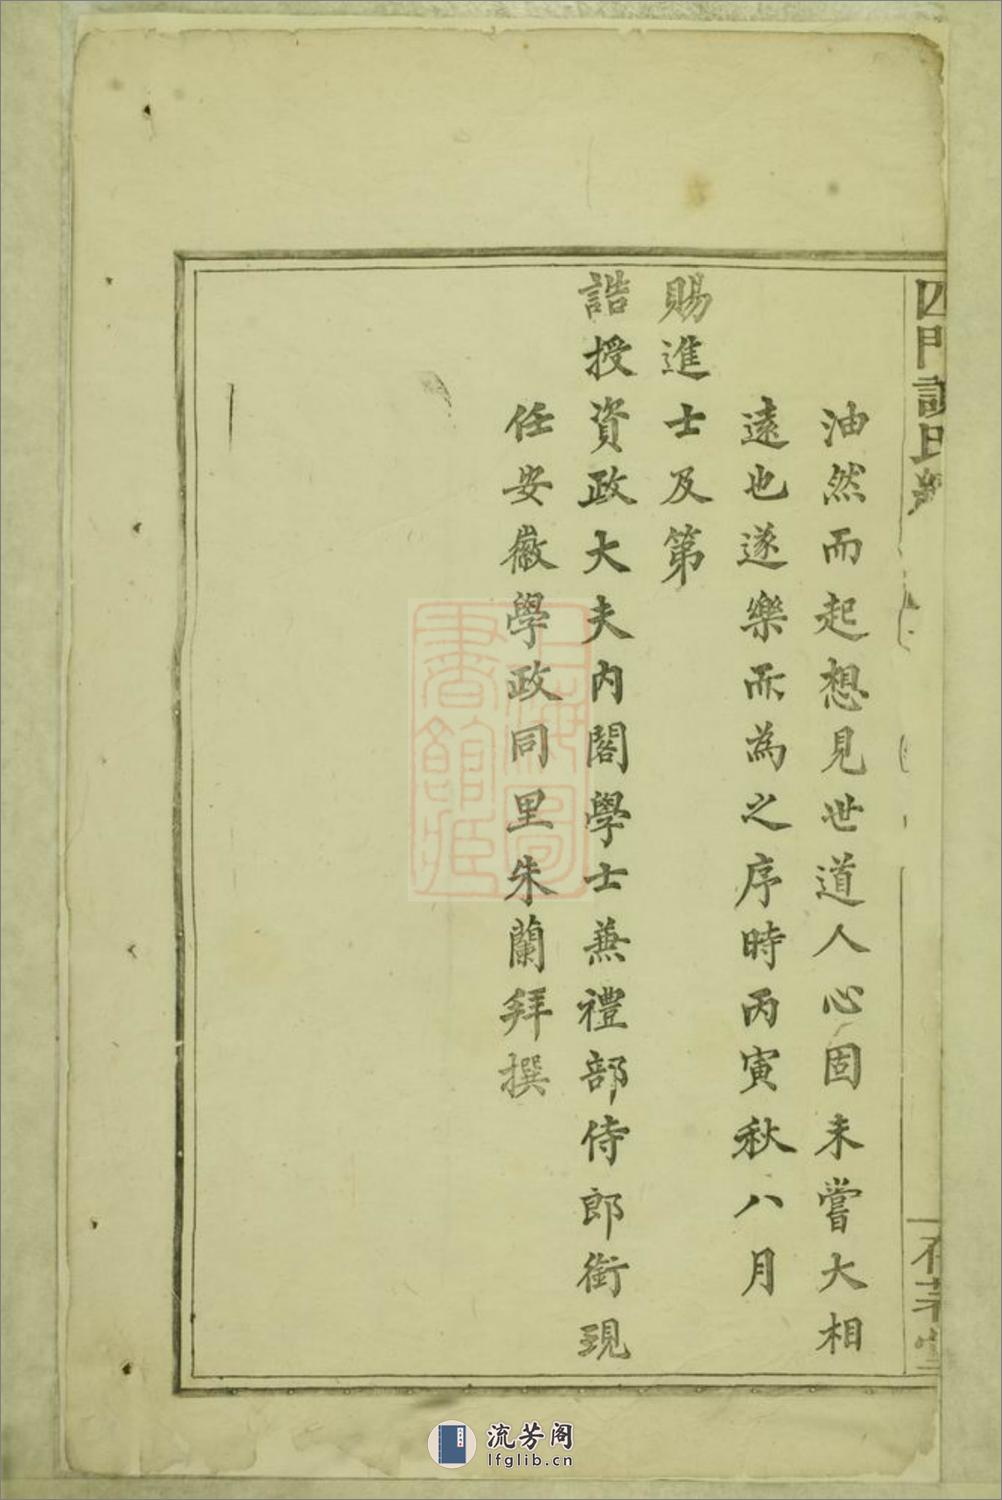 四門謝氏
油然而起想見世道人心固未嘗大相
遠也遂樂而為之序時丙寅秋八月
賜進士及第
誥授資政大夫內閣學士兼禮部侍郎銜現
任安徽學政同里朱蘭拜撰
上海圖書館藏
流芳阁
lfglib.cn